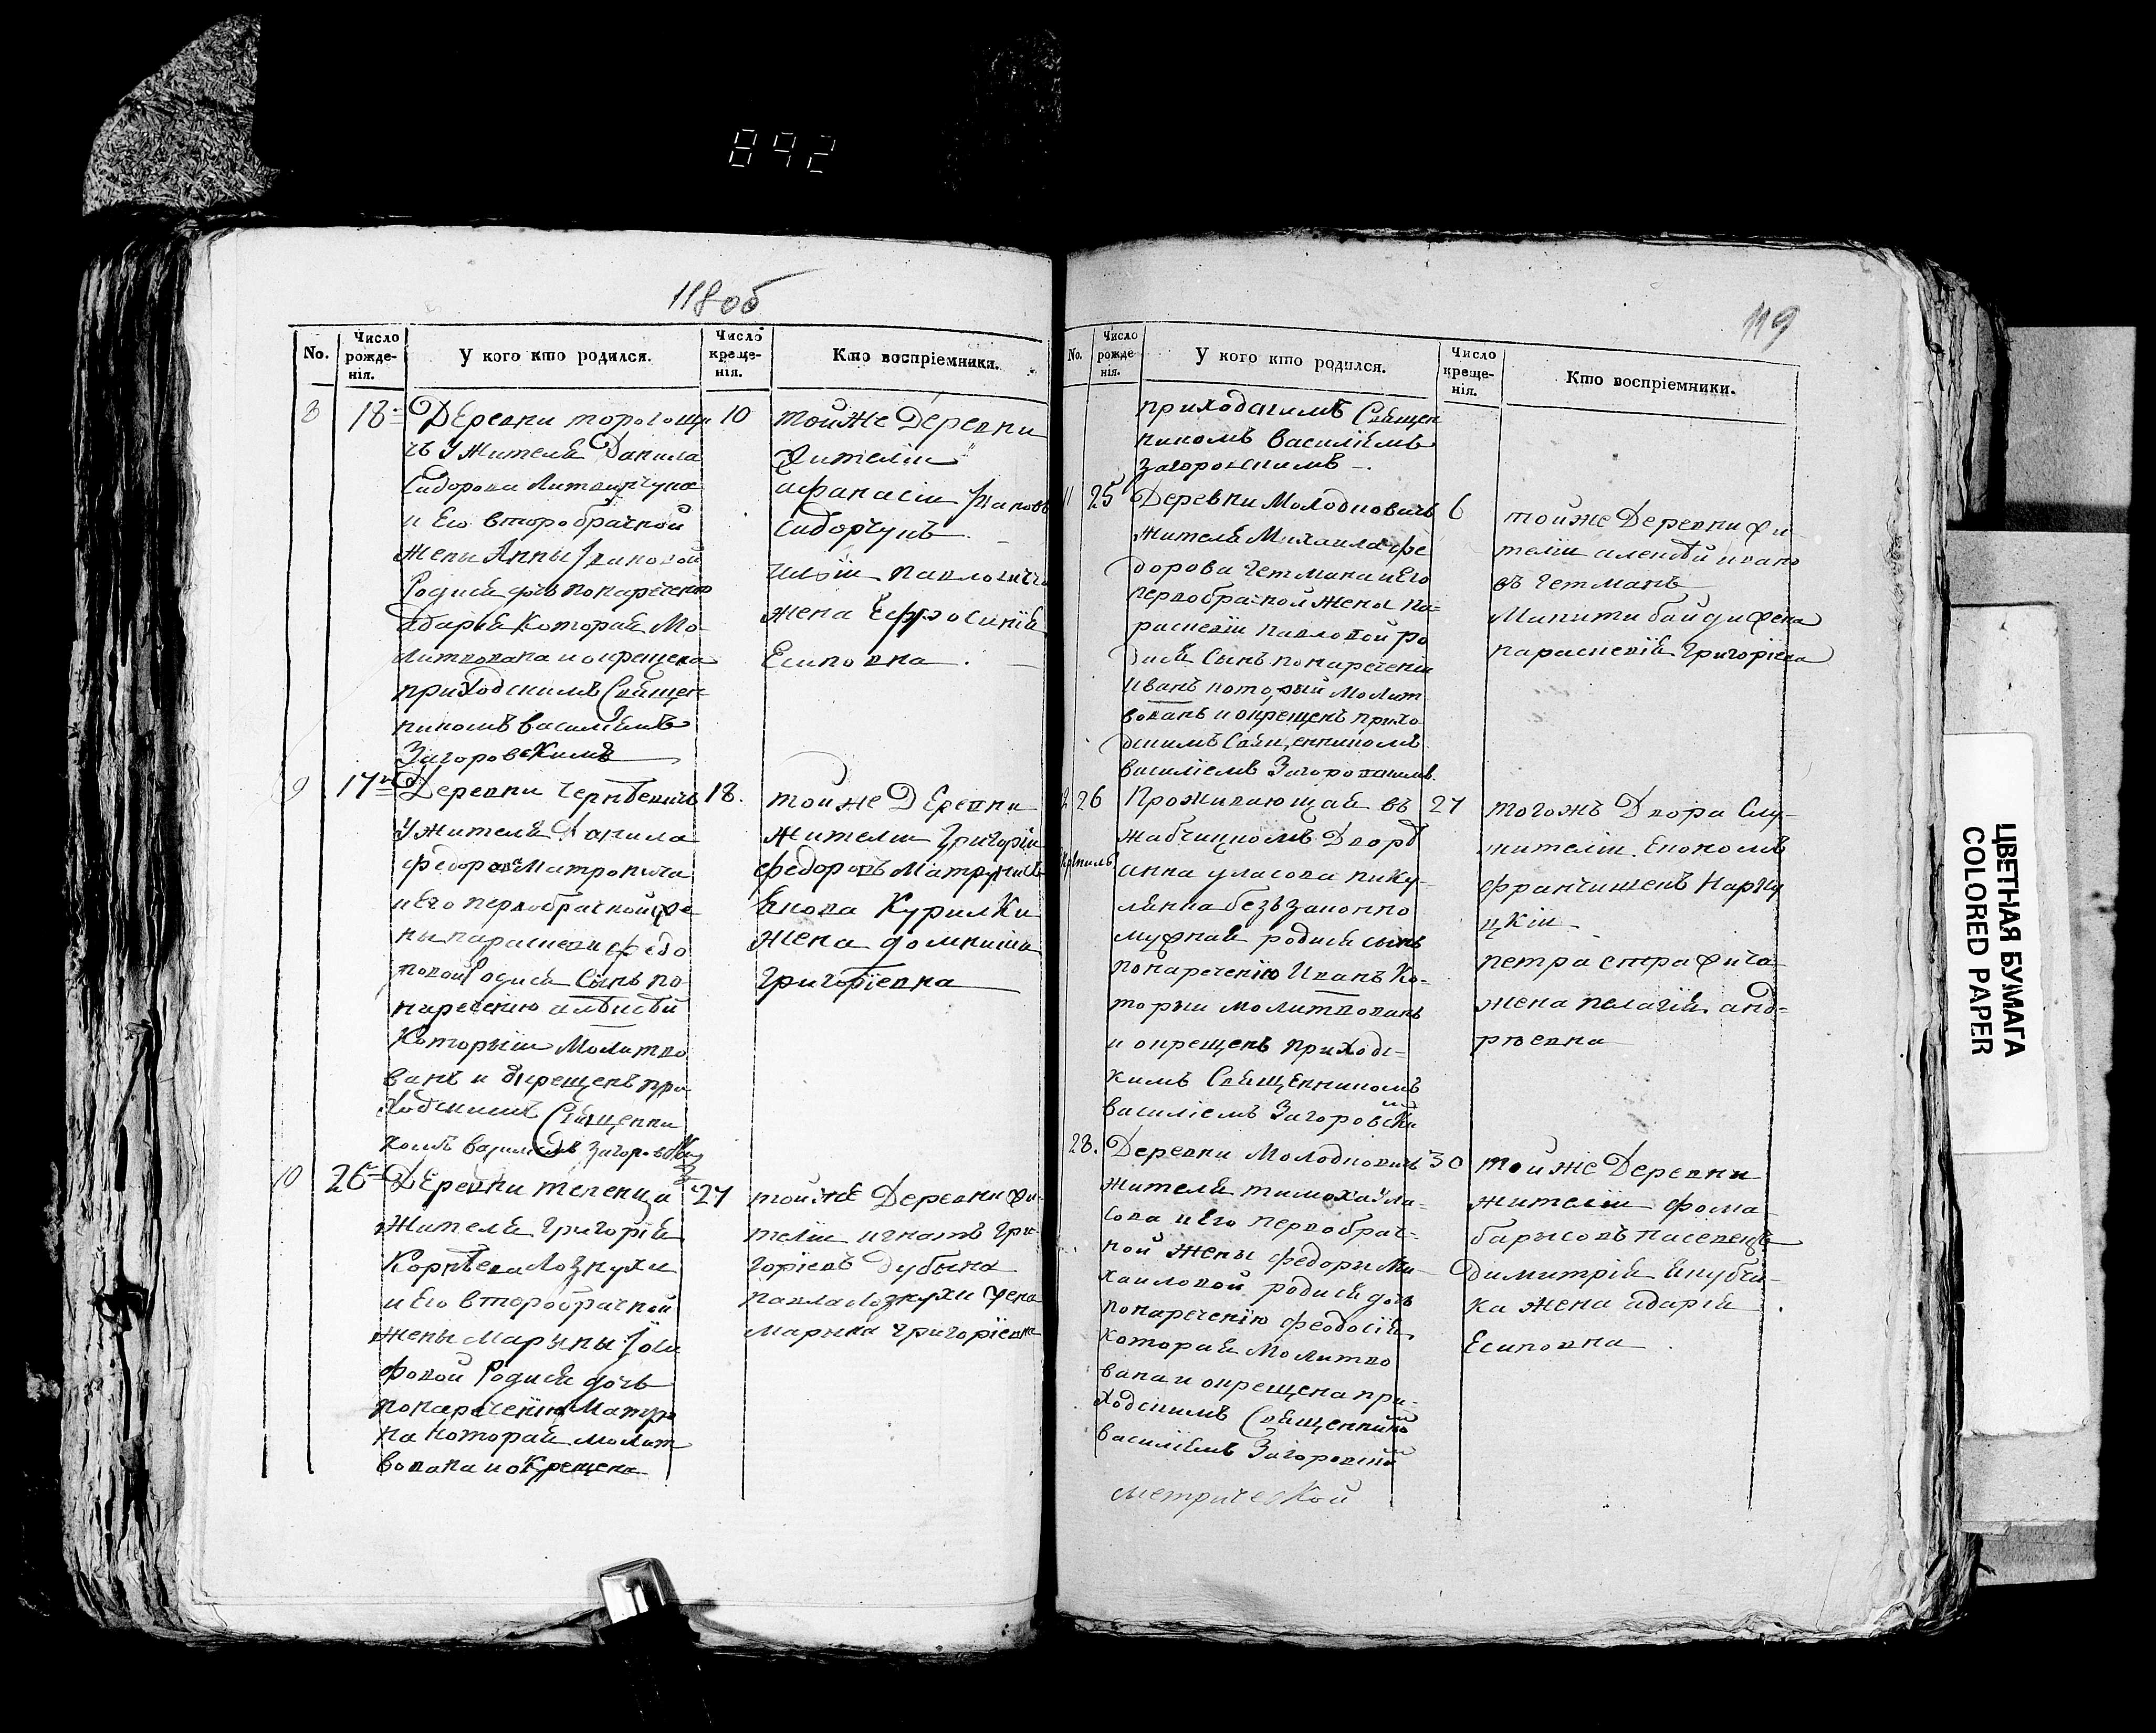 892
118 об
No.
Число рожде-нія.
У кого кто родился.
Число креще-нія.
Кто воспріемники.
8 18
Деревни торогощи 10
чъ У Жителя Данила
Сидорова Литвинчука
и Его второбрачной
жены Анны Ивановой
Родися дочь понаречению
адарія Которая Мо-
литвована и окрещена
приходскимъ Священ
никомъ василіемъ
Загоровскимъ
тойже Деревни
жители
афанасіи Ивановъ
Сидорчукъ
иліи павловича
жена Ефросинія
Есиповна
9 17
Деревни Чернѣевичъ 18.
У жителя Данила
федорова Митровича
и Его первобрачной же
ны парасковіи федо
ровой Родися Сынъ по
наречению алѣксѣй
Которыи Молитво
ванъ и окрещенъ при
ходскимъ Священни
комъ василіемъ Загоровски
тойже Деревни
жители Григоріи
федоровъ
Якова Курилки
жена домникия
Григоріевна
10 26
Деревни теленци 27
жителя Григорія
Корнѣева Лознухи
и Его второбрачной
жены Марыны Іоси
фовой Родися дочь
понаречению Матро
на которая молит
вована и окрещена
тойже Деревни жи-
тели игнатъ Гри
горіевъ Дубына
павла Лознухи жена
марына григоріевна
119
No.
Число рожде нія.
У кого кто родился.
Число креще-нія.
Кто воспріемники.
приходскимъ Священ
никомъ василіемъ
загоровскимъ
11 25 Деревни Молодковичъ 6
жителя Михаила фе
дорова Гетмана и Его
первобрачной жены па-
расковіи павловой ро
дися Сынъ понаречению
Иванъ которыи молит
вованъ и окрещенъ прихо
дскимъ Священникомъ
василіемъ Загоровскимъ
тойже Деревни жи
тели алексѣй ивано
въ Гетманъ
Микити байди жена
парасковія Григоріевна
26 Проживающая въ 27
жабчицкомъ Дворѣ
анна уласова пику-
лянка безъзаконно
мужная родися сынъ
понаречению Иванъ Ко-
торыи молитвованъ
и окрещенъ приходс-
кимъ Священникомъ
василіемъ Загоровски
тогожъ Двора Слу-
жители Економъ
францишекъ
цкіи
петра
жена пелагія анд-
рѣевна
28. Деревни Молодковичъ 30
жителя тимоха ула-
сова и Его первобрач-
ной жены федори Ми
хаиловой родися дочь
понаречению феодосія
которая Молитво
вана и окрещена при-
ходскимъ Священнико
василіемъ Загоровской
тойже Деревни
жители фома
барысовъ
димитрія якубчи-
ка жена адарія
Есиповна
метрической
ЦВЕТНАЯ БУМАГА
COLORED PAPER